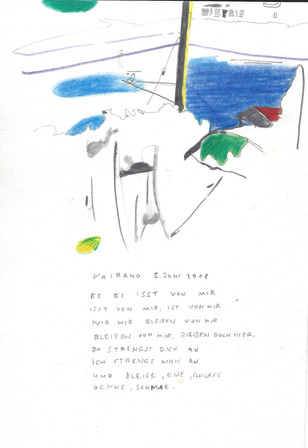 VAIRANO 5. JUNI 2018
ES ES ISST VON MIR
ISST VON MIR, IST VON MIR,
WIR WIR BLEIBEN VON MIR
BLEIBEN VON MIR, BLEIBEN DOCH HIER,
DU STRENGST DICH AN
ICH STRENGE MICH AN
UND BLEIBE, EHE, SCHLAFE
DENKE,